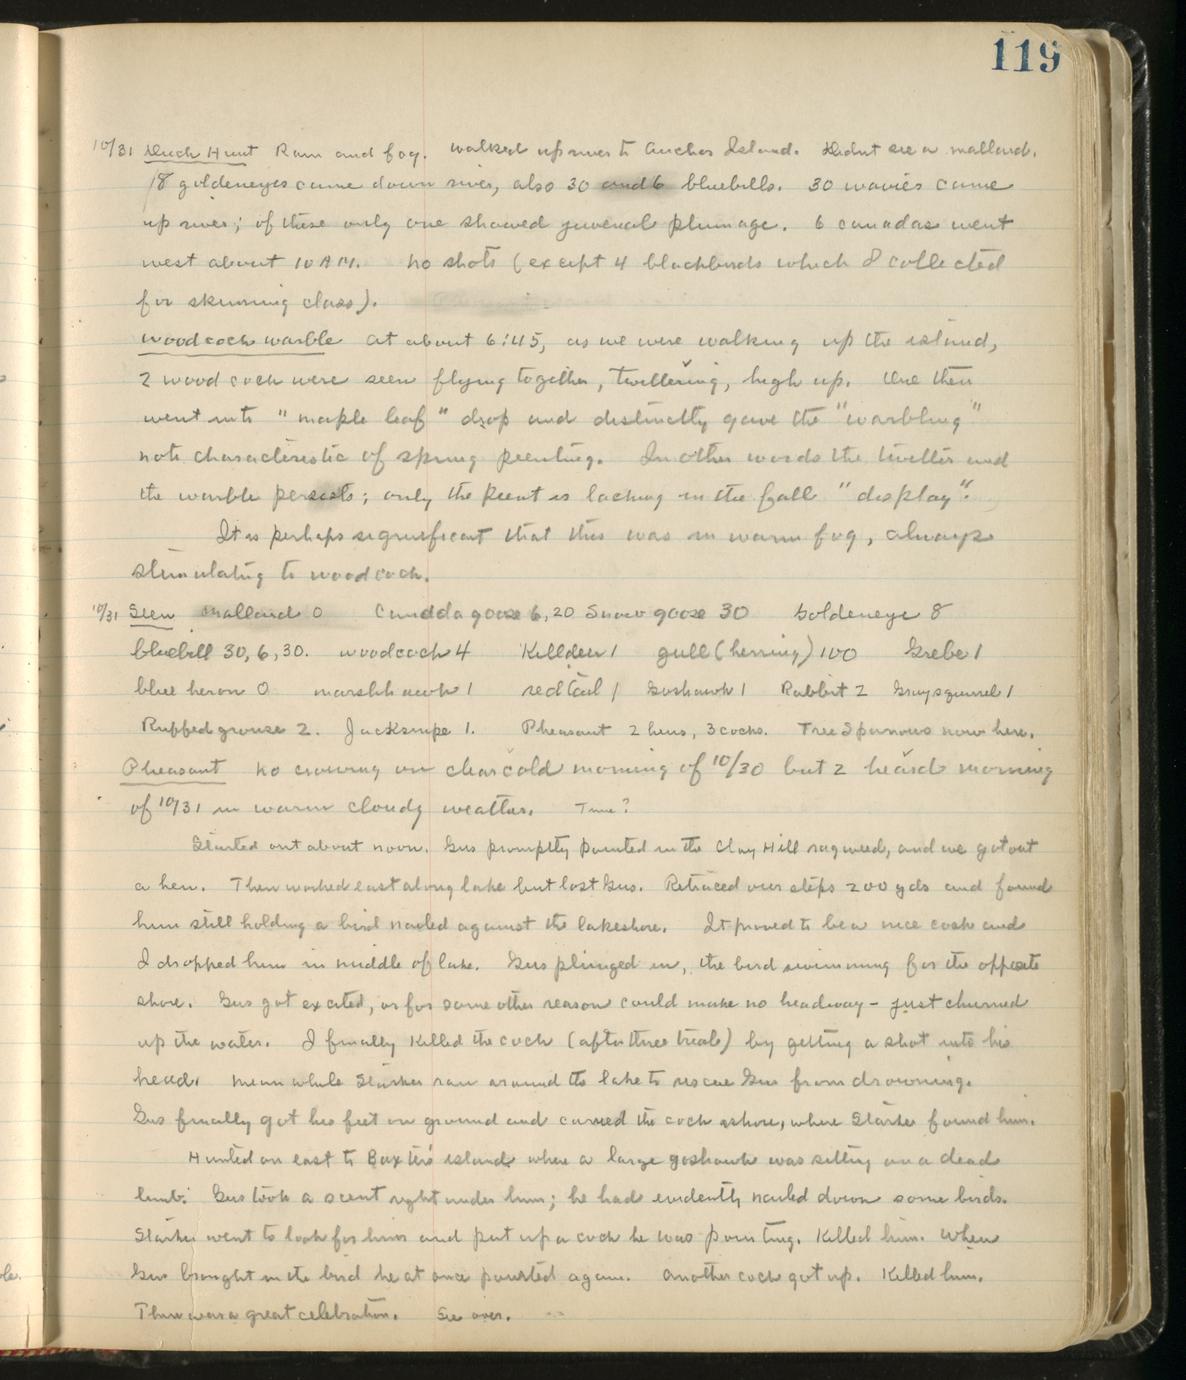 119
10/31 Duck Hunt Rain and fog. Walked up river to Anchor Island. Didnt see a mallard.
18 goldeneyes came down river, also 30 and 6 bluebills. 30 wavies came
up river; of these only one showed juvenal plumage. 6 canadas went
west about 10 AM. No shots (except 4 blackbirds which I collected
for skinning class).
Woodcock warble At about 6:45, as we were walking up the island,
2 woodcock were seen flying together, twittering, high up. One then
went into "maple leaf" drop and distinctly gave the "warbling"
note characteristic of spring peenting. In other words the twitter and
the warble persists; only the peent is lacking in the fall "display".
It is perhaps significant that this was in warm fog, always
stimulating to woodcock.
10/31 Seen Mallard 0 Canada goose 6, 20 Snow goose 30 Goldeneye 8
bluebill 30, 6, 30. woodcock 4 Killdeer 1 gull (herring) 100 Grebe 1
blue heron 0 marshhawk 1 redtail 1 Goshawk 1 Rabbit 2 Graysquirrel 1
Ruffed grouse 2. Jacksnipe 1. Pheasant 2 hens, 3 cocks. Tree Sparrows now here.
Pheasant No crowing on clear cold morning of 10/30 but 2 heard morning
of 10/31 in warm cloudy weather. Time?
Started out about noon. Gus promptly pointed in the Clay Hill ragweed, and we got out
a hen. Then worked east along lake but lost Gus. Retraced our steps 200 yds and found
him still holding a bird nailed against the lakeshore. It proved to be a nice cock and
I dropped him in middle of lake. Gus plunged in, the bird swimming for the opposite
shore. Gus got excited, or for some other reason could make no headway - just churned
up the water. I finally killed the cock (after three trials) by getting a shot into his
head. Meanwhile Starker ran around the lake to rescue Gus from drowning.
Gus finally got his feet on ground and carried the cock ashore, where Starker found him.
Hunted on east to Baxters island where a large goshawk was sitting on a dead
limb. Gus took a scent right under him; he had evidently nailed down some birds.
Starker went to look for him and put up a cock he was pointing. Killed him. When
Gus brought in the bird he at once pointed again. Another cock got up. Killed him.
There was a great celebration. See over.